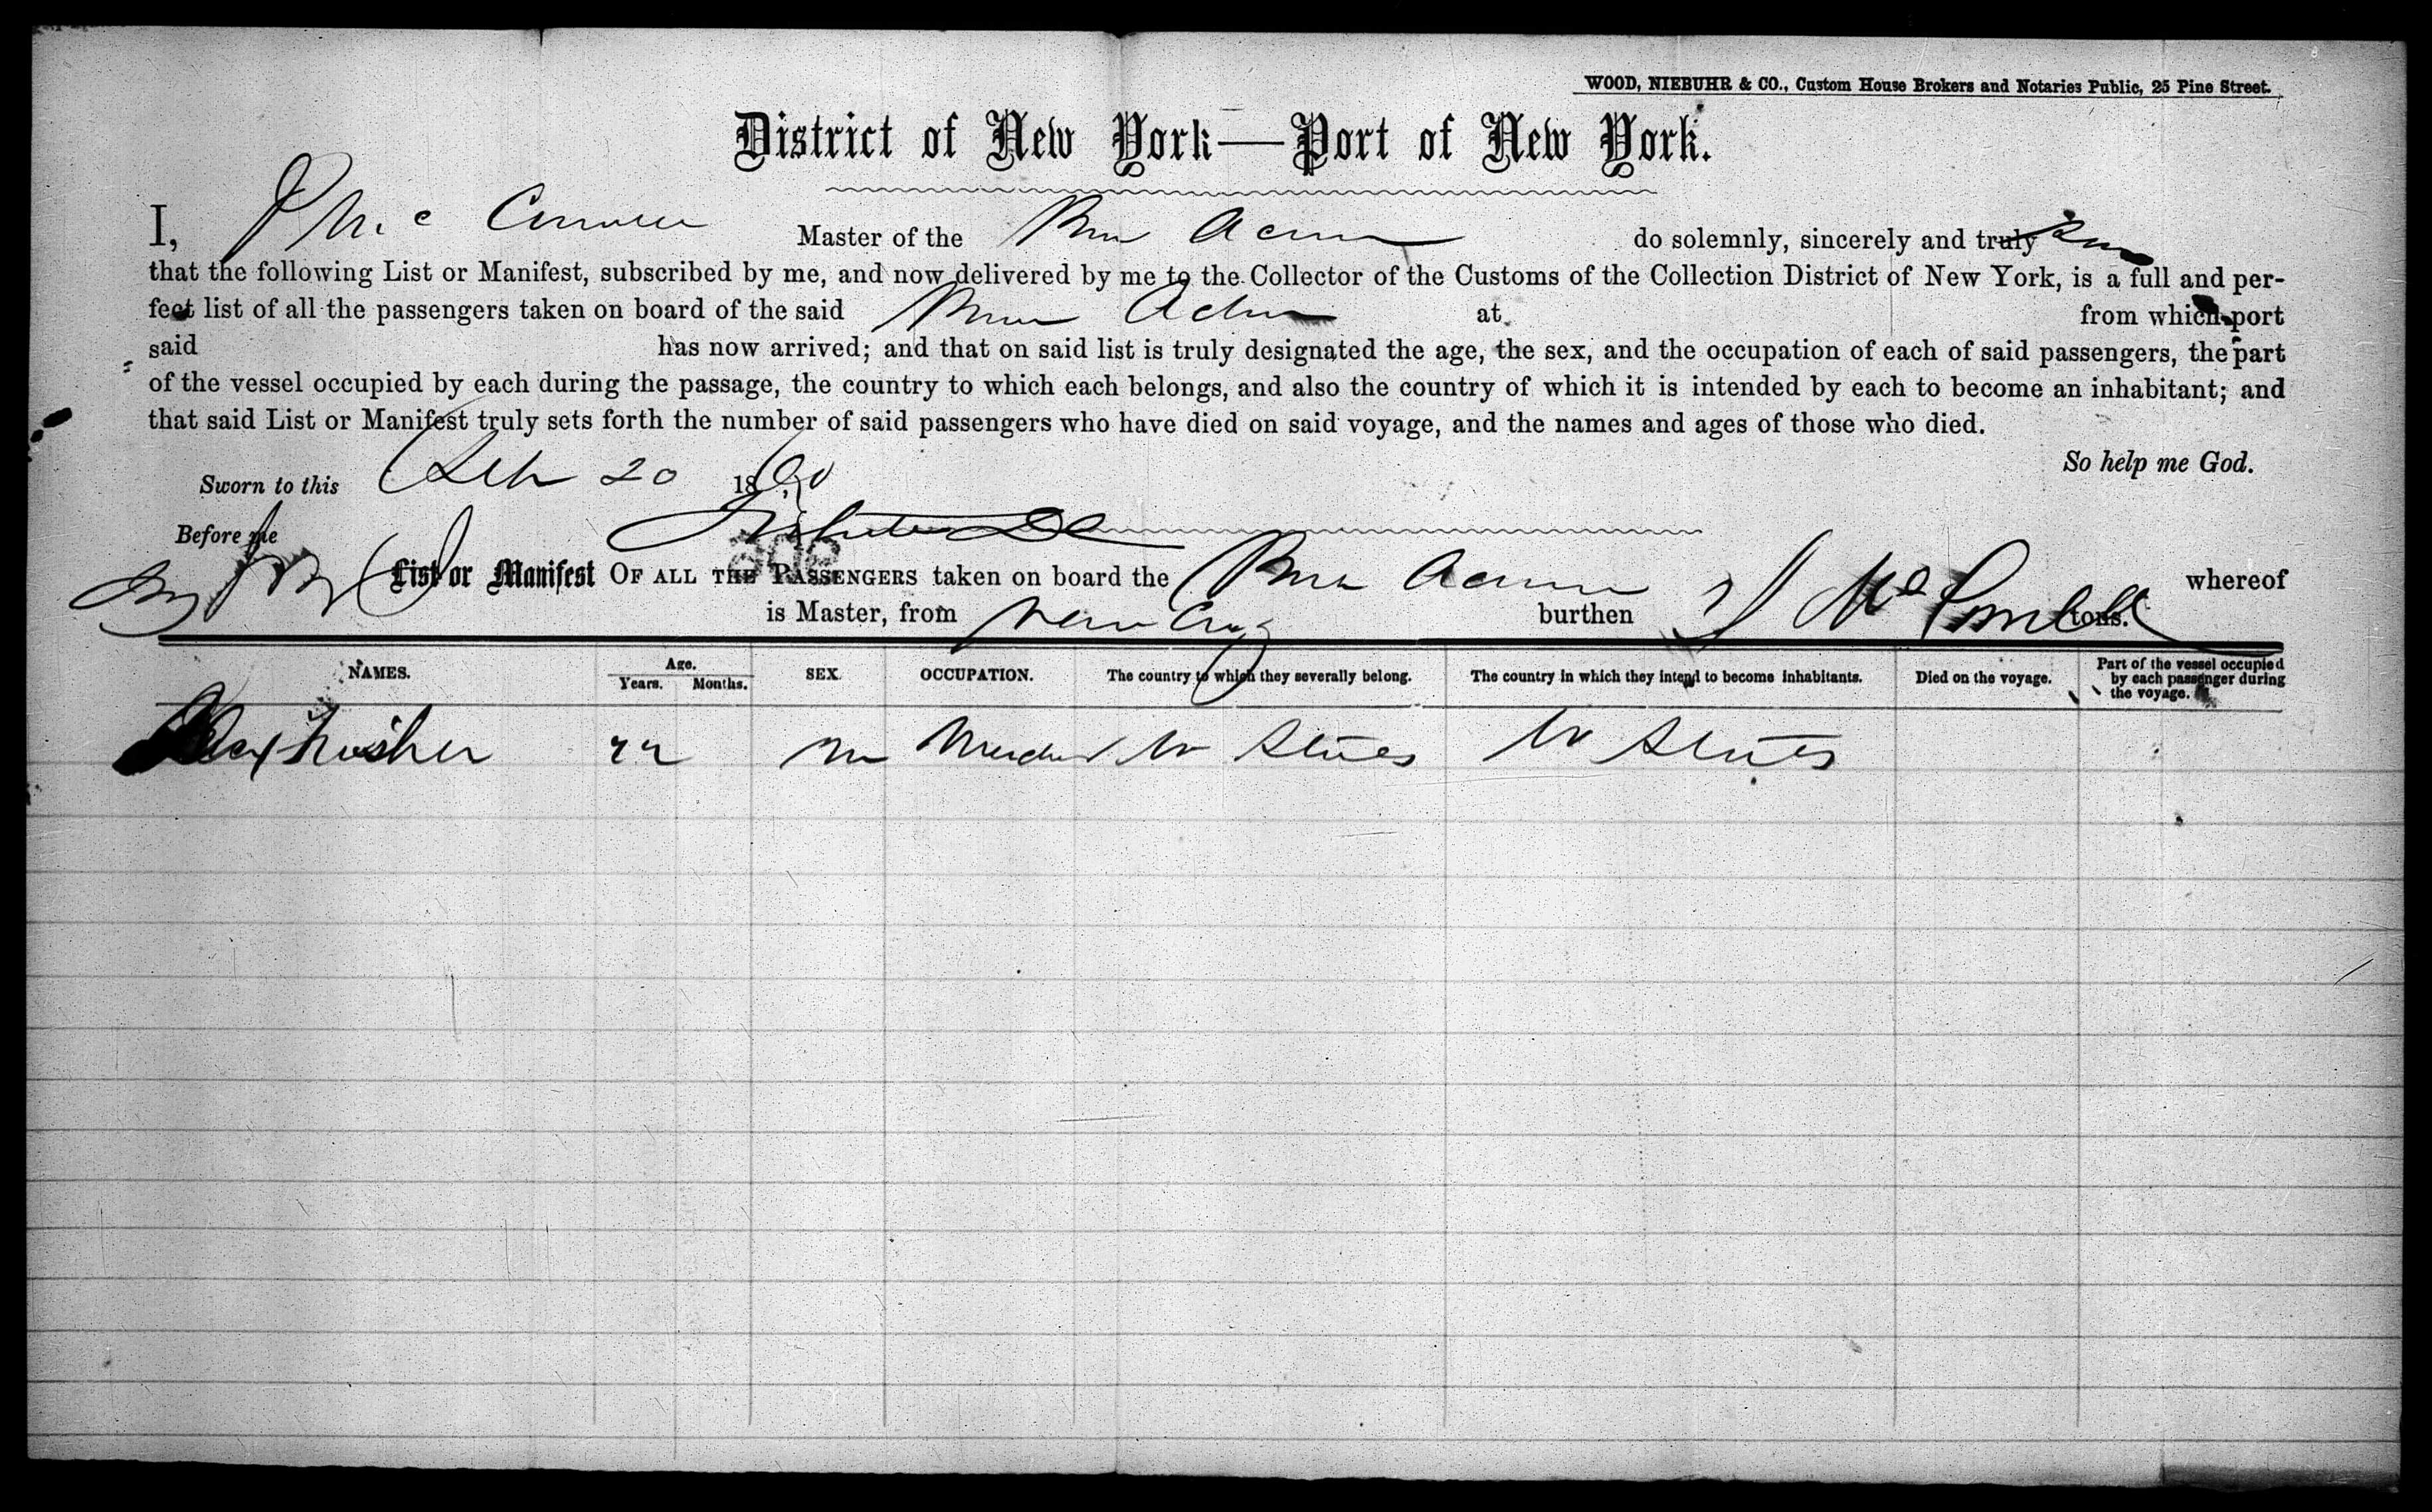 WOOD, NIEBUHR & CO., Custom House Brokers and Notaries Public, 25 Pine Street.
District of New York—Port of New York.
I, J Mc Master of the Acm do solemnly, sincerely and truly
that the following List or Manifest, subscribed by me, and now delivered by me to the Collector of the Customs of the Collection District of New York, is a full and per-
fect list of all the passengers taken on board of the said at from which port
said has now arrived; and that on said list is truly designated the age, the sex, and the occupation of each of said passengers, the part
of the vessel occupied by each during the passage, the country to which each belongs, and also the country of which it is intended by each to become an inhabitant; and
that said List or Manifest truly sets forth the number of said passengers who have died on said voyage, and the names and ages of those who died.
So help me God.
Sworn to this Feb 20 1860
Before me
List or Manifest OF ALL THE PASSENGERS taken on board the whereof
is Master, from burthen J Mc tons.
NAMES. Age. Years. Months. SEX. OCCUPATION. The country to which they severally belong. The country in which they intend to become inhabitants. Died on the voyage. Part of the vessel occupied by each passenger during the voyage.
22 m States States